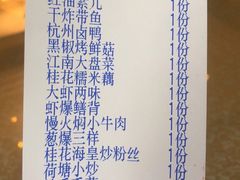 红油素几 1份
干炸带鱼 1份
杭州卤鸭 1份
黑椒烤鲜菇 1份
江南大盘菜 1份
桂花糯米藕 1份
大虾两味 1份
虾爆鳝背 1份
慢火焖小牛肉 1份
葱爆三样 1份
桂花海皇炒粉丝 1份
荷塘小炒 1份